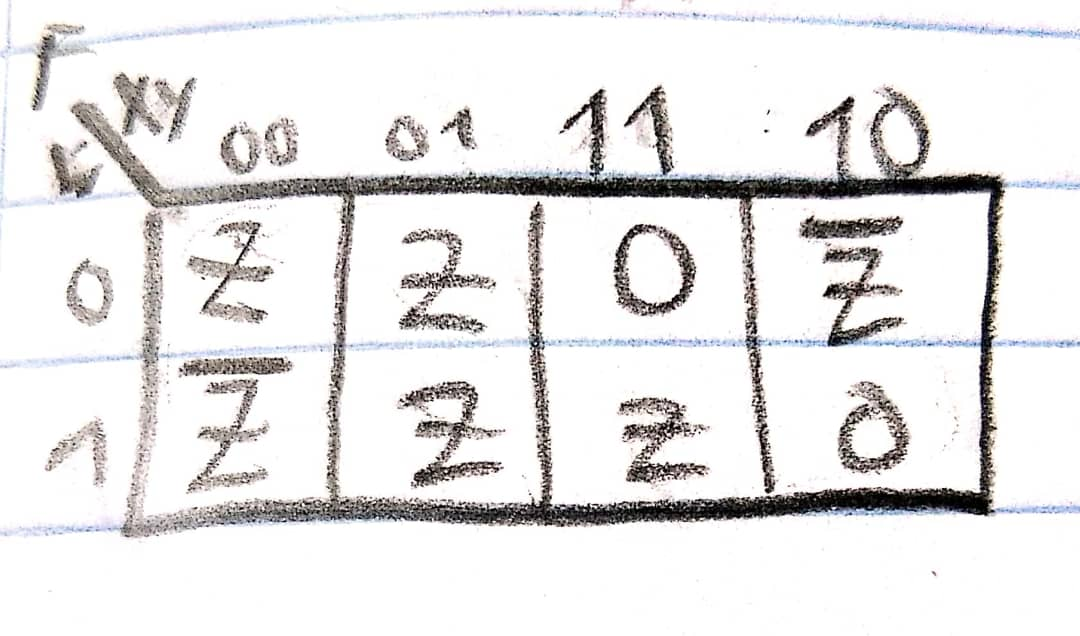 F
xy 00 01 11 10
t
0 Z Z 0 Z̅
1 Z̅ Z Z 0